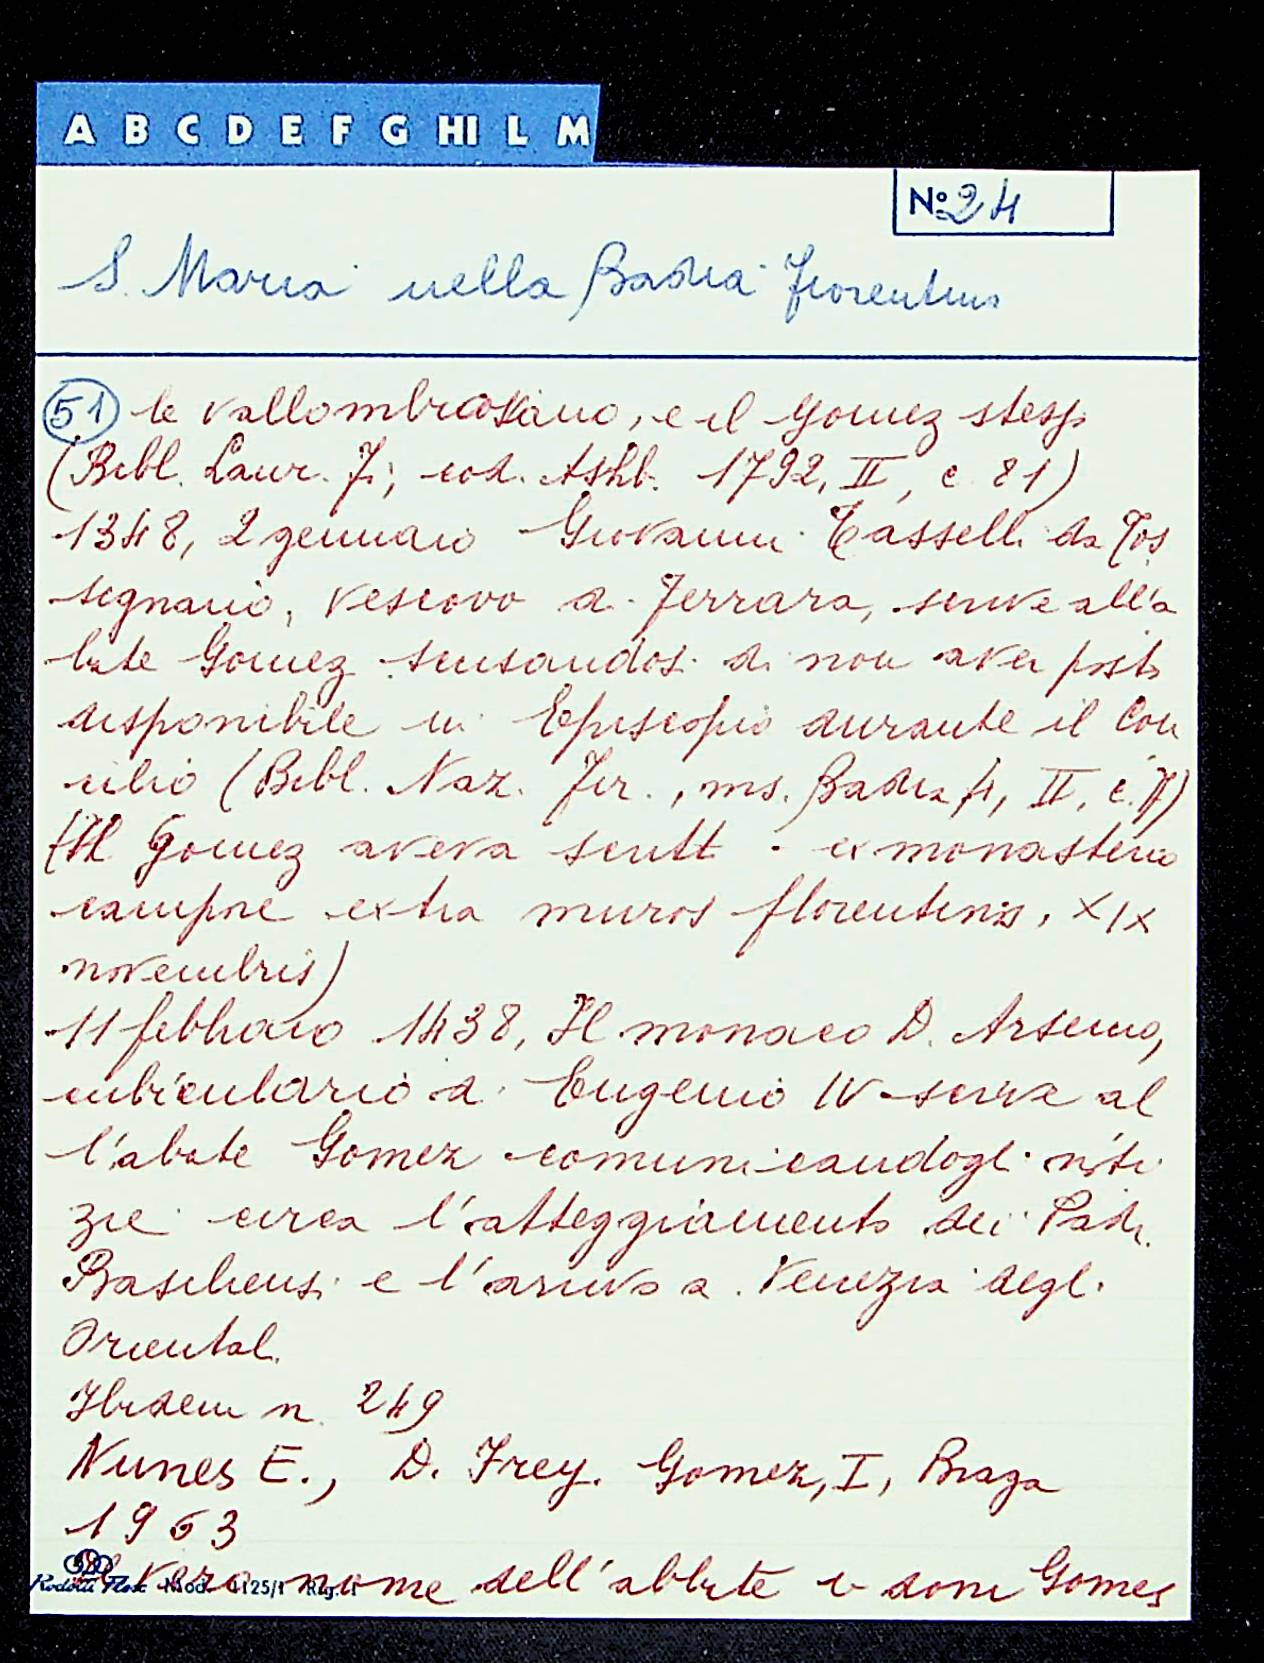 A B C D E F G HI L M
No 24
S. Maria nella Badia Fiorentina
51 le vallombrosano, e il Gomez stesso
(Bibl. Laur. F; cod. Ashb. 1792, II, c 81)
1348, 2 gennaio Giovanni Tasselli da Tos
signano, vescovo di Ferrara, scrive all'a
bate Gomez scusandosi di non aver posto
disponibile in Episcopio durante il Con
cilio (Bibl. Naz. Fir., ms. Badia 4, II, c. 7)
(Il Gomez aveva scritto ex monasterio
campore extra muros florentinos, XIX
novembris)
11 febbraio 1438, Il monaco D. Arsenio,
cubiculario di Eugenio IV scrive al
l'abate Gomez comunicandogli noti
zie circa l'atteggiamento dei Padri
Basileensi e l'arrivo a Venezia degli
Orientali.
Ibidem n. 249
Nunes E., D. Frey. Gomez, I, Braga
1963
Il vero nome dell'abbate è dom Gomes
Mod. 4125/1 Rig. 1